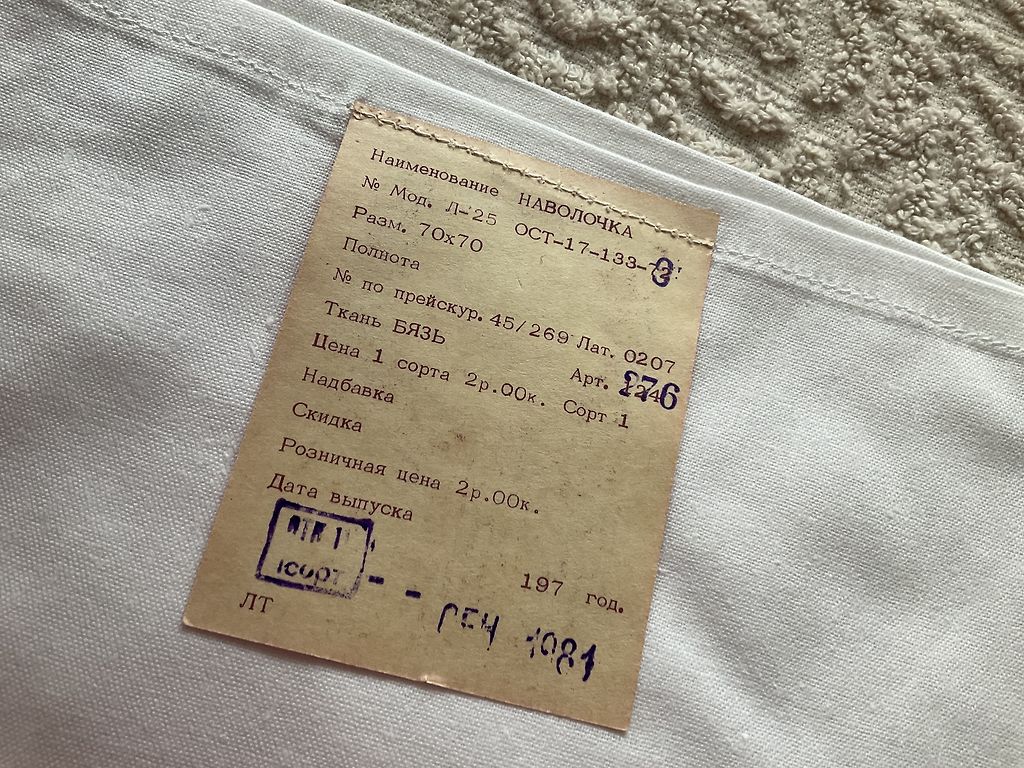 Наименование НАВОЛОЧКА
№ Мод. Л-25 ОСТ-17-133-
Разм. 70х70
Полнота
№ по прейскур. 45/269 Лат. 0207
Ткань БЯЗЬ Арт. 276
Цена 1 сорта 2р.00к. Сорт 1
Надбавка
Скидка
Розничная цена 2р.00к.
Дата выпуска
197 год.
1СОРТ
ЛТ
1981